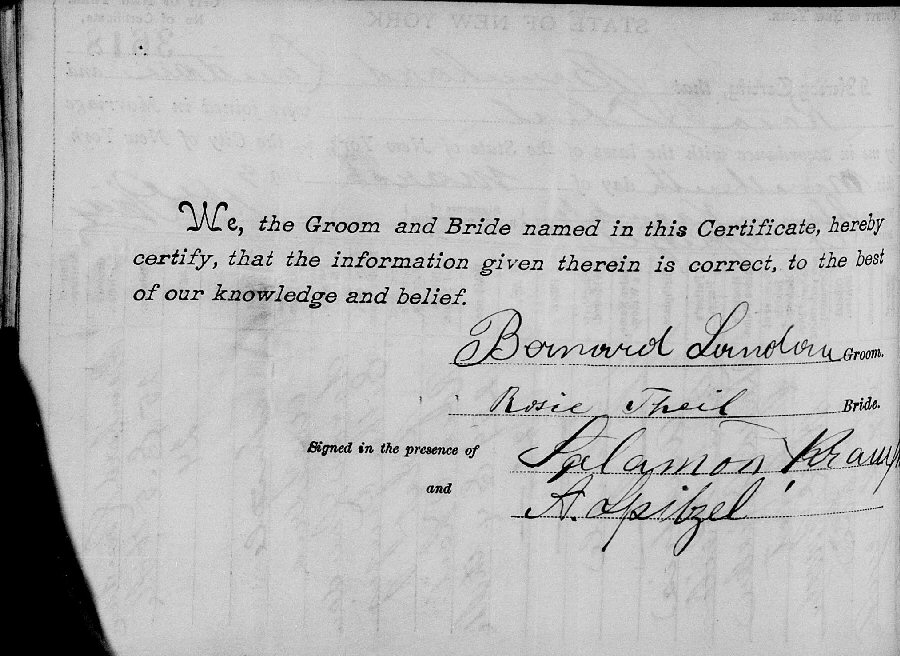 We, the Groom and Bride named in this Certificate, hereby
certify, that the information given therein is correct, to the best
of our knowledge and belief.
Bernard Landau Groom.
Rosie Theil Bride.
Signed in the presence of Salamon
and A. Spitzel